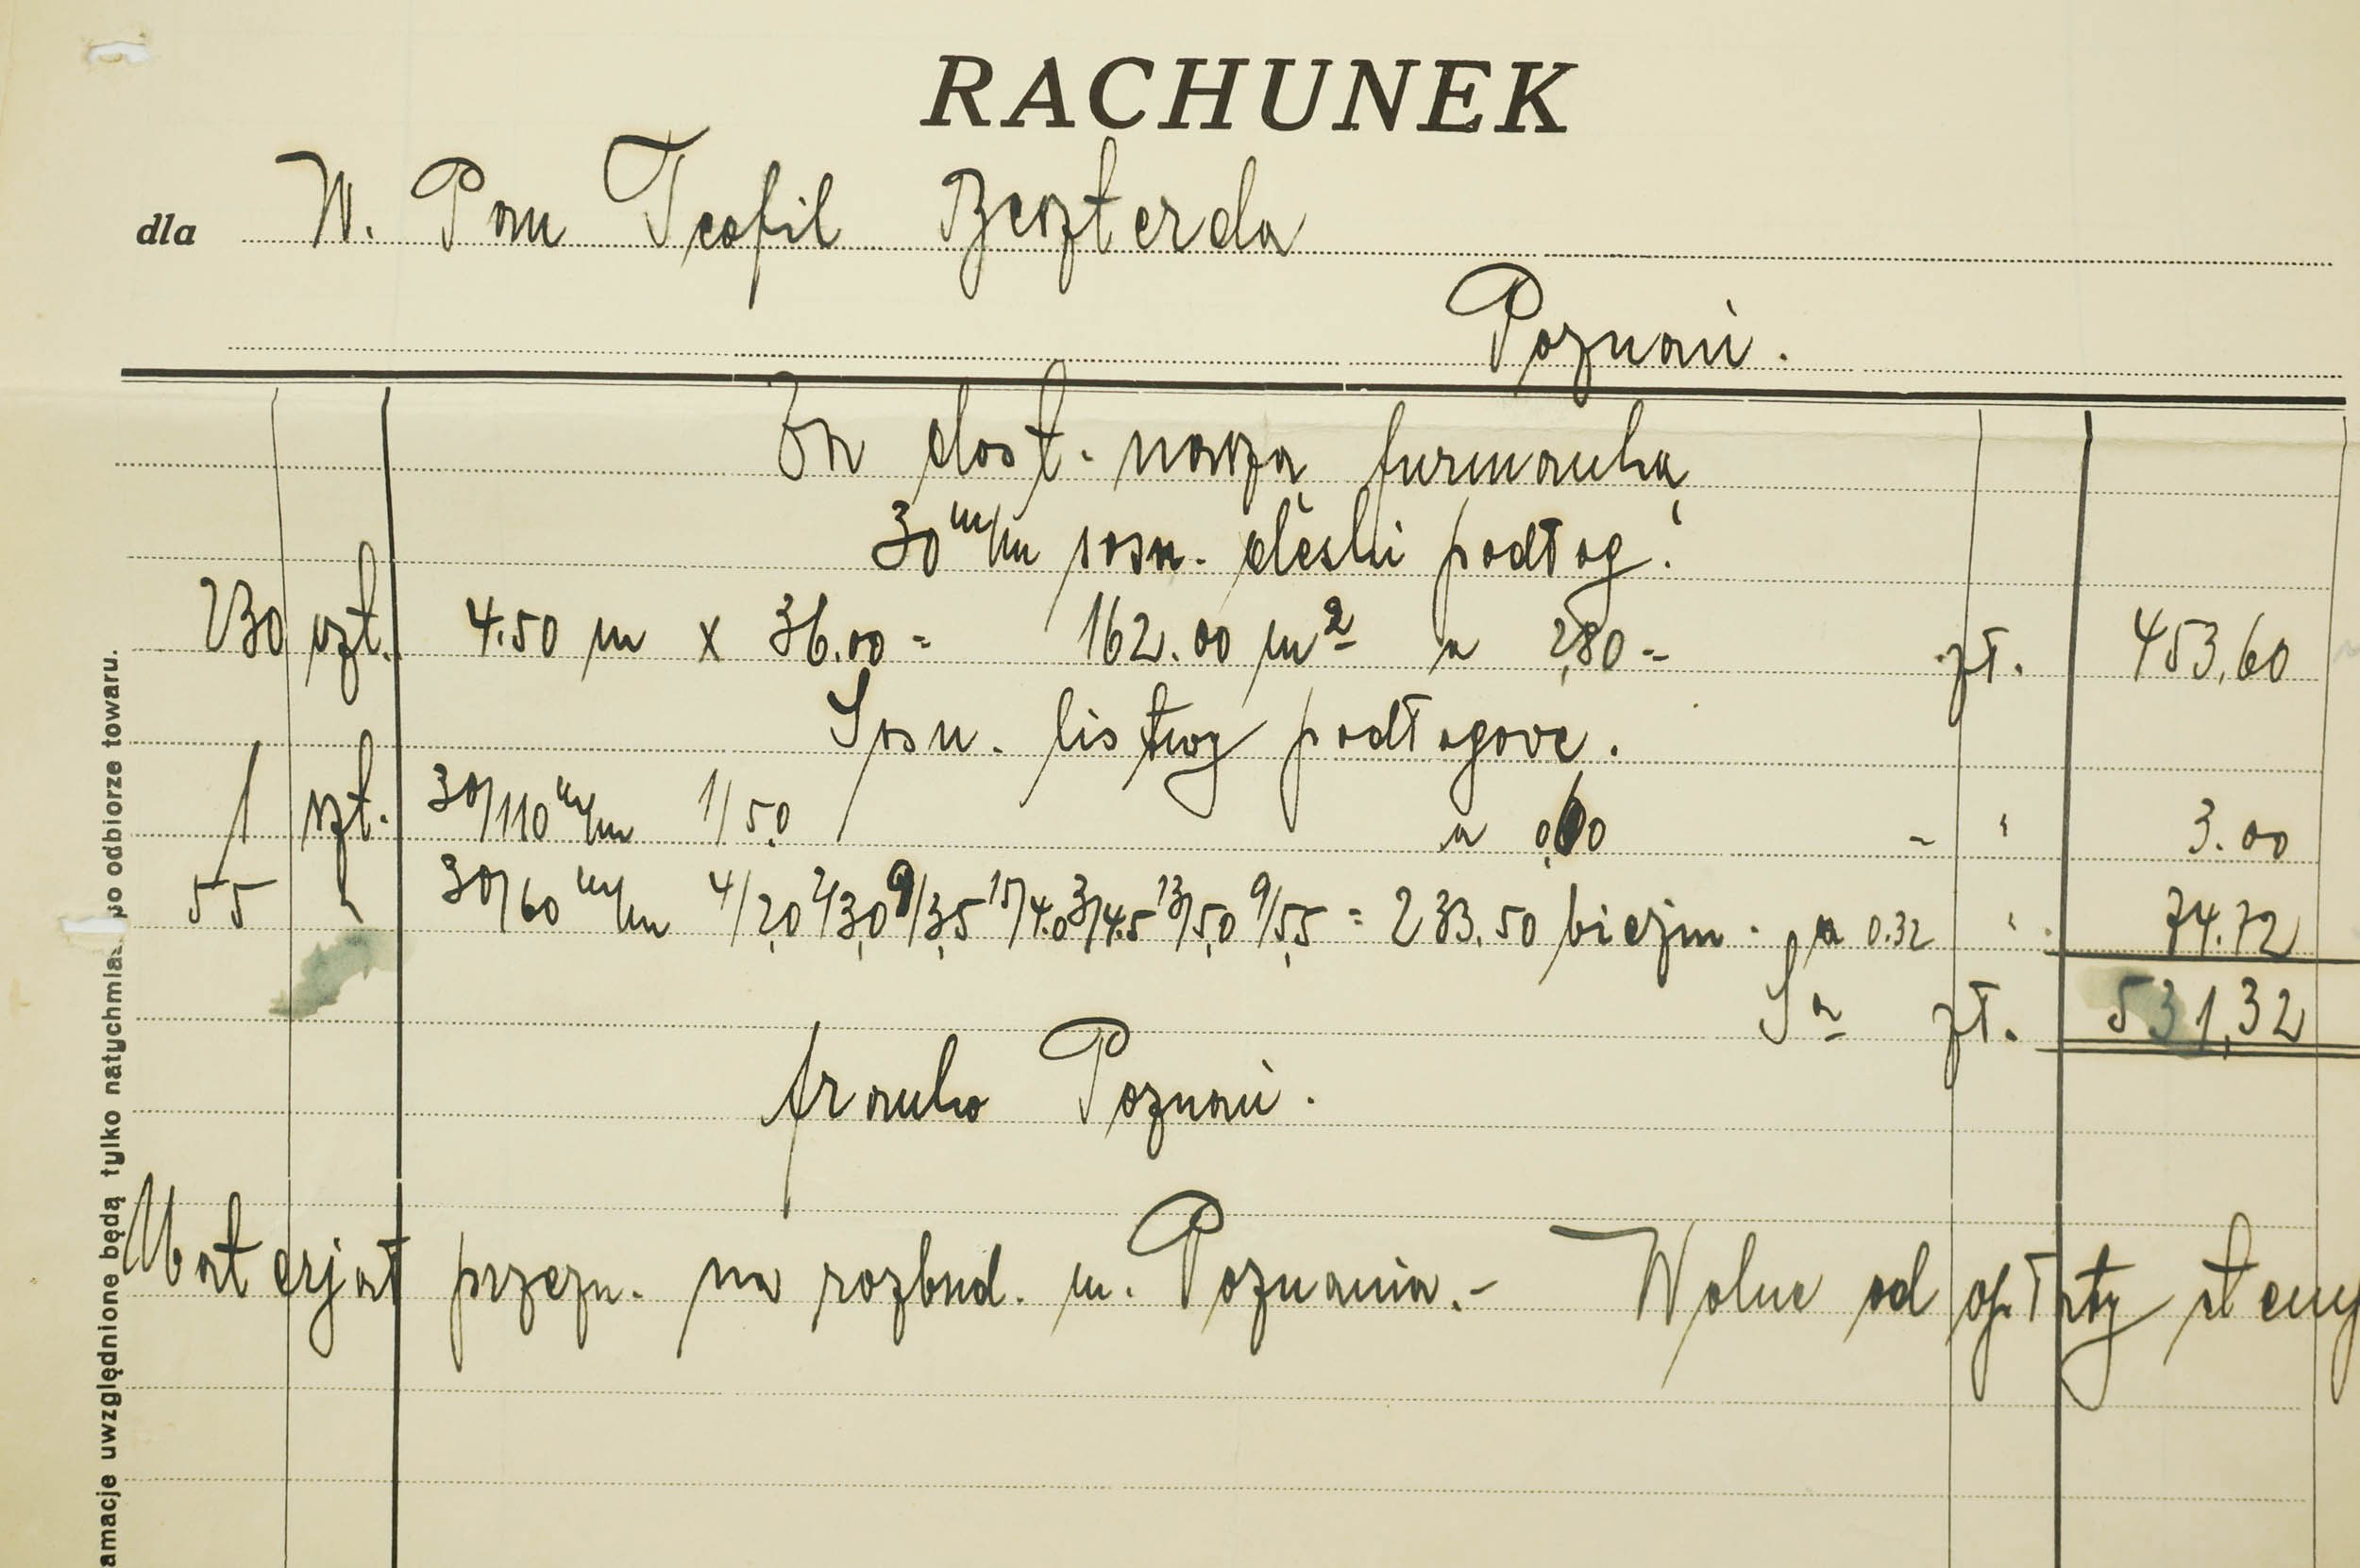 RACHUNEK
dla W. Pan Teofil Beszterda
Poznań.
Za dost. naszą furmanką
30 m/m sosn. deski podłog.:
230 szt. 4.50 m x 36.00 = 162.00 m² a 2,80 = zł. 453,60
Sosn. listwy podłogowe.
1 szt. 30/110 m/m 1/5.0 a 0,60 - " 3.00
55 " 30/60 m/m 4/2,0 2/3,0 9/3,5 15/4.0 3/4.5 13/5,0 9/5,5 = 233.50 bieżm. a 0.32 " 74.72
Sa zł. 531,32
franko Poznań.
Materjał przezn. na rozbud. m. Poznania.- Wolne od opłaty stemp
amacje uwzględnione będą tylko natychmias po odbiorze towaru.